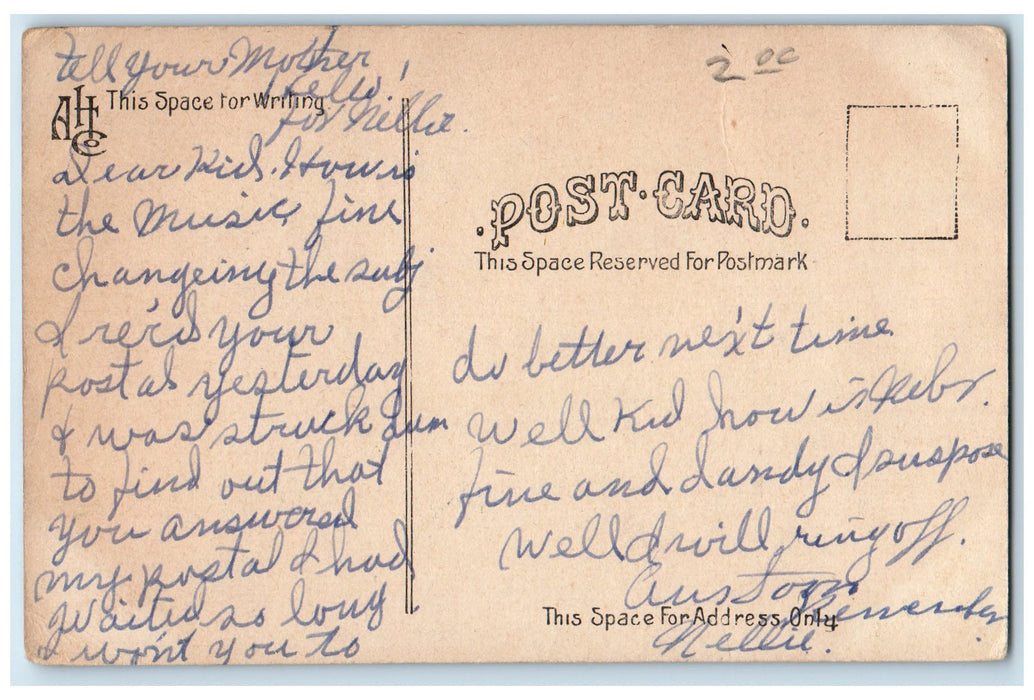 tell your Mother
Hello!
for Nellie.
AHCo
This Space for Writing
Dear Kid. How is
the music fine
changeing the subj
I rec'd your
postal yesterday
& was struck dum
to find out that
you answered
my postal I had
waited so long
I won't you to
2.00
POST·CARD.
This Space Reserved For Postmark
do better next time
Well Kid how is Nebr.
fine and dandy I suspose
Well I will ring off.
Ans soon
Remember
This Space For Address Only
Nellie.